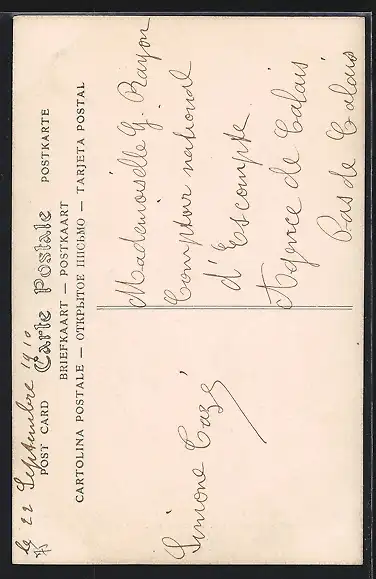 le 22 Septembre 1910
POST CARD Carte Postale POSTKARTE
BRIEFKAART — POSTKAART
CARTOLINA POSTALE — ОТКРЫТОЕ ПИСЬМО — TARJETA POSTAL
Simone Cazé
Mademoiselle G. Rayon
Comptoir national
d'Escompte
Agence de Calais
Pas de Calais